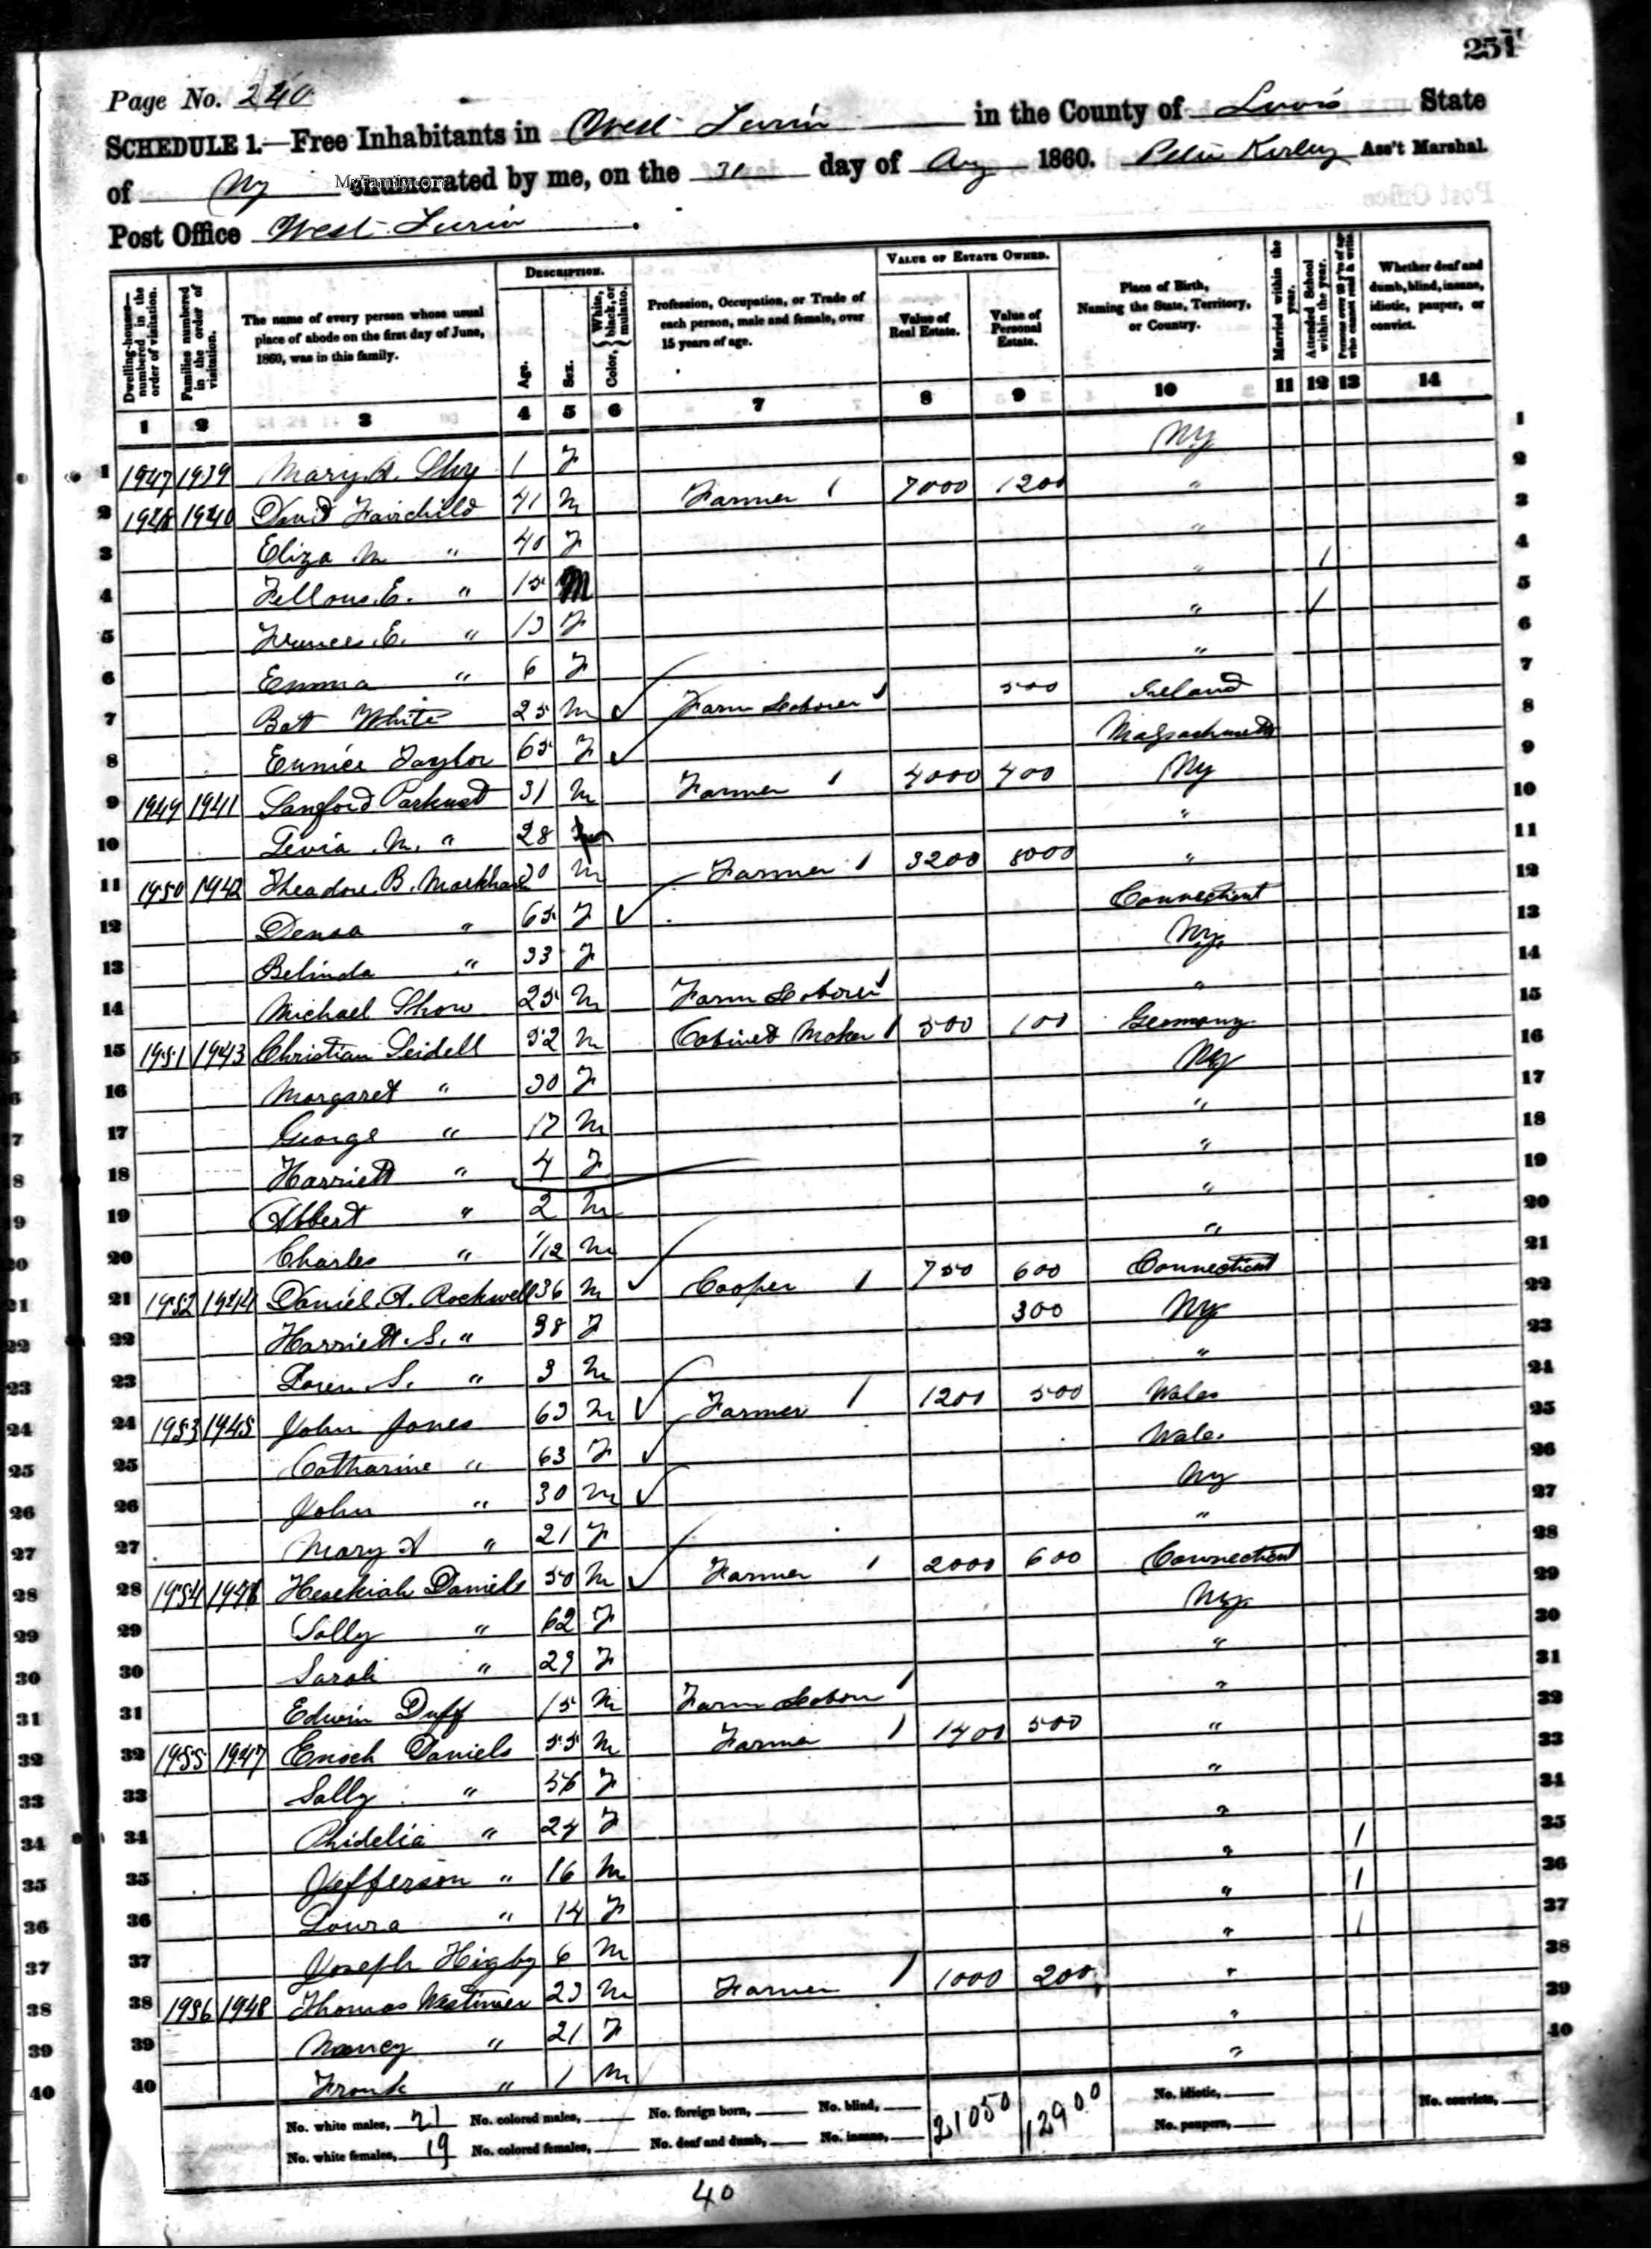 251
Page No. 240
SCHEDULE 1.—Free Inhabitants in West Turin in the County of Lewis State
of Ny enumerated by me, on the 31 day of Aug 1860. Peter Kirley Ass't Marshal.
MyFamily.com
Post Office West Turin
Dwelling-houses—numbered in the order of visitation.
Families numbered in the order of visitation.
The name of every person whose usual place of abode on the first day of June, 1860, was in this family.
DESCRIPTION.
Age.
Sex.
Color, White, black, or mulatto.
Profession, Occupation, or Trade of each person, male and female, over 15 years of age.
VALUE OF ESTATE OWNED.
Value of Real Estate.
Value of Personal Estate.
Place of Birth, Naming the State, Territory, or Country.
Married within the year.
Attended School within the year.
Persons over 20 y'rs of age who cannot read & write.
Whether deaf and dumb, blind, insane, idiotic, pauper, or convict.
1 2 3 4 5 6 7 8 9 10 11 12 13 14
1 1947 1939 Mary A. 1 F Ny 1
2 1948 1940 David Fairchild 41 M Farmer 1 7000 1200 " 2
3 Eliza M " 40 F " 3
4 Fellows E. " 15 M " 1 4
5 Frances E. " 13 F " 1 5
6 Emma " 6 F " 6
7 Bat White 25 M ✓ Farm Laborer 1 500 Ireland 7
8 Eunice Taylor 65 F ✓ Massachusetts 8
9 1949 1941 Sanford Parkust 31 M Farmer 1 4000 400 Ny 9
10 M. " 28 " 10
11 1950 1942 Theadore B. Markham 30 M Farmer 1 3200 8000 " 11
12 Densa " 65 F ✓ Connecticut 12
13 Belinda " 33 F Ny 13
14 Michael Show 25 M Farm Laborer 1 " 14
15 1951 1943 Christian Seidell 52 M Cabinet Maker 1 500 100 Germany 15
16 Margaret " 30 F Ny 16
17 George " 17 M " 17
18 Harriett " 4 F " 18
19 Albert " 2 M " 19
20 Charles " 1/12 M " 20
21 1952 1944 Daniel A. Rockwell 36 M ✓ Cooper 1 750 600 Connecticut 21
22 Harriett S. " 38 F 300 Ny 22
23 Loren S. " 3 M " 23
24 1953 1945 John Jones 63 M ✓ Farmer 1 1200 500 Wales 24
25 Catharine " 63 F ✓ Wales 25
26 John " 30 M ✓ Ny 26
27 Mary A " 21 F " 27
28 1954 1946 Hesekiah Daniels 50 M ✓ Farmer 1 2000 600 Connecticut 28
29 Sally " 62 F Ny 29
30 Sarah " 29 F " 30
31 Edwin Duff 15 M Farm Labore 1 " 31
32 1955 1947 Enoch Daniels 55 M Farmer 1 1400 500 " 32
33 Sally " 56 F " 33
34 Phidelia " 24 F " 34
35 Jefferson " 16 M " 1 35
36 Loura " 14 F " 1 36
37 Joseph Higby 6 M " 1 37
38 1956 1948 Thomas 23 M Farmer 1 1000 200 " 38
39 Nancy " 21 F " 39
40 Frank " 1 M " 40
No. white males, 21 No. colored males, No. foreign born, No. blind, 21050 12900 No. idiotic, No. convicts,
No. white females, 19 No. colored females, No. deaf and dumb, No. insane, No. paupers,
40